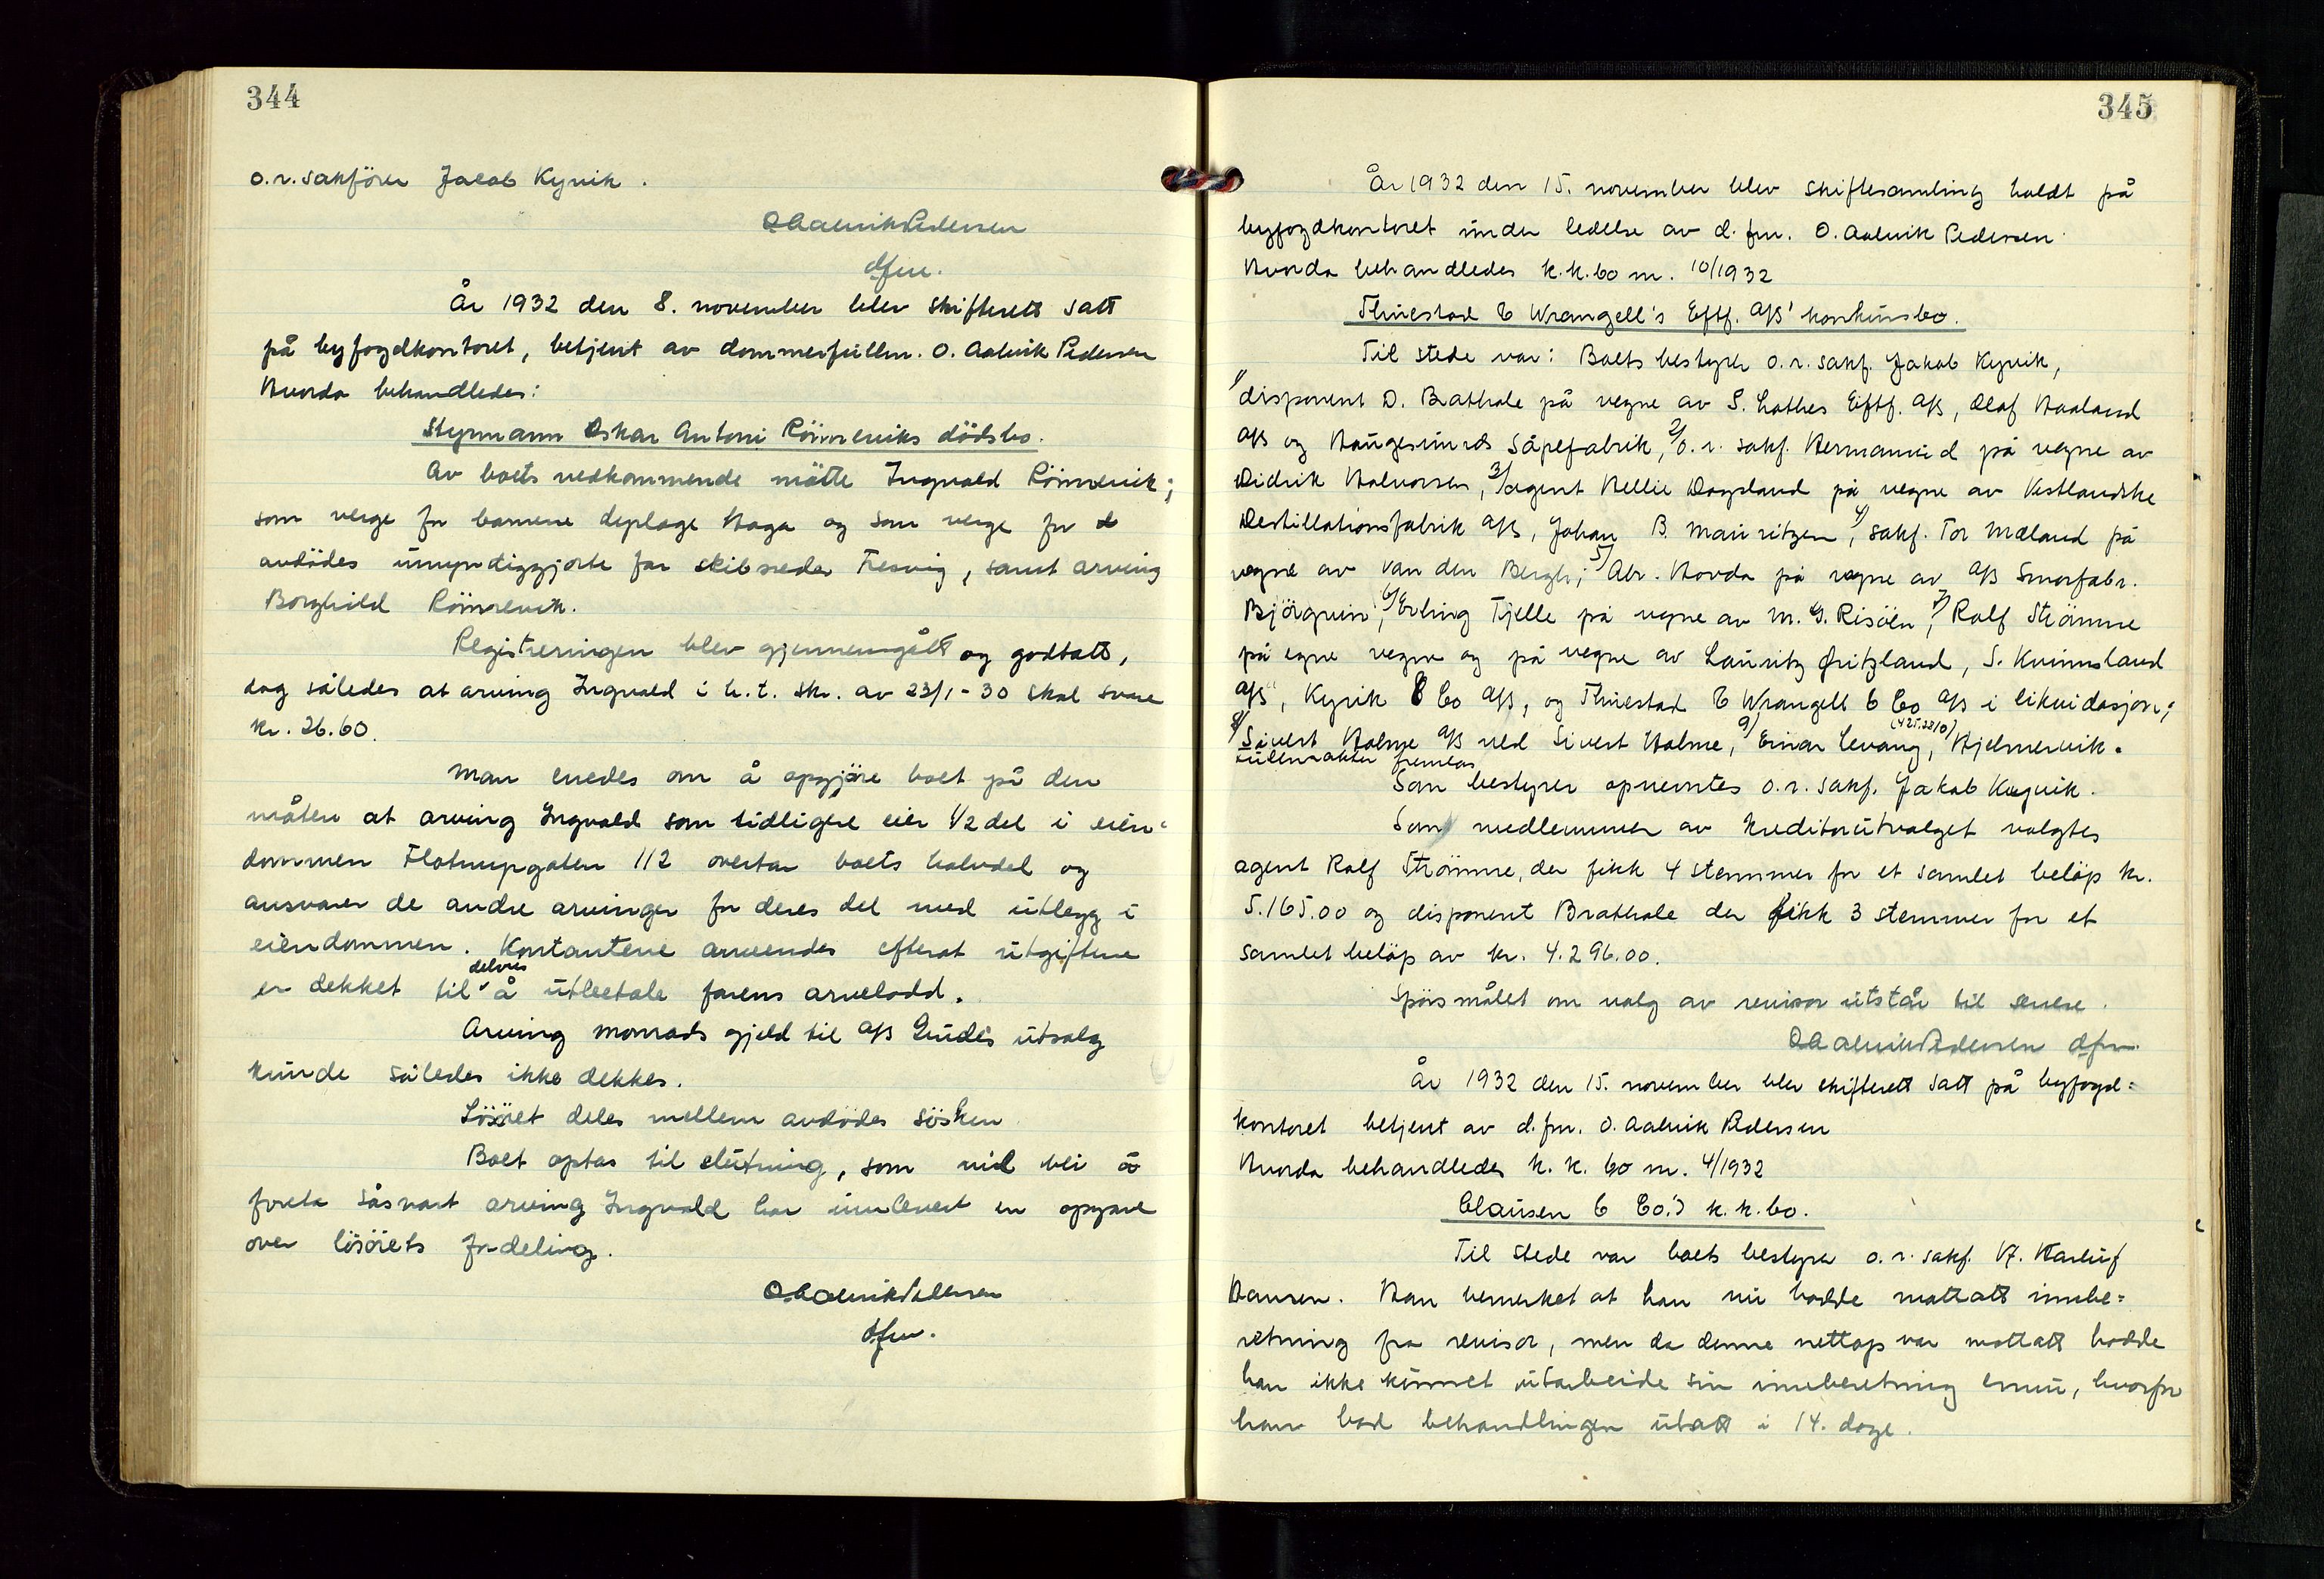 344
o.r.sakförer Jacob Kyvik.
O Aalvik Pedersen
dfm.
År 1932 den 8. november blev skifterett satt
på byfogdkontoret, betjent av dommerfullm. O. Aalvik Pedersen
Hvorda behandledes:
Styrmann Oskar Antoni Rönneviks dödsbo.
Av boets vedkommende mötte Ingvald Rönnevik;
som verge for barnene Haga og som verge for
avdödes umyndiggjorte far skibsreder Tresvig, samt arving
Borghild Rönnevik.
Registreringen blev gjennemgått og godtatt,
dog således at arving Ingvald i h.t. skr. av 23/1-30 skal svare
kr. 26.60.
Man enedes om å opgjöre boet på den
måten at arving Ingvald som tidligere eier 1/2 del i eien-
dommen Flotmyrgaten 112 overtar boets halvdel og
ansvarer de andre arvinger for deres del med utlegg i
eiendommen. Kontantene anvendes efterat utgiftene
er dekket til delvis å utbetale farens arvelodd.
Arving Monrads gjeld til A/S Gudes utsalg
kunde således ikke dekkes.
Lösöret deles mellem avdödes sösken
Boet optas til slutning, som vil bli å
foreta såsnart arving Ingvald har innlevert en opgave
over lösörets fordeling.
O Aalvik Pedersen
dfm.
345
År 1932 den 15. november blev skiftesamling holdt på
byfogdkontoret under ledelse av d.fm. O. Aalvik Pedersen
Hvorda behandledes k.k.bo nr. 10/1932
Thuestad & Wrangell's Eftf. A/S' konkursbo.
Til stede var: Boets bestyrer o.r. sakf. Jakob Kyvik,
1/ disponent D. Brathole på vegne av S. Lothes Eftf. A/S, Olaf Haaland
A/S og Haugesunds Såpefabrik, 2/ o.r. sakf. Hermannrud på vegne av
Didrik Halvorsen, 3/ agent Nellie Dagsland på vegne av Vestlandske
Destillationsfabrik A/S, Johan B. Mauritzen, 4/ sakf. Tor Mæland på
vegne av van den Bergh; 5/ Abr. Hovda på vegne av A/S Smørfabr.
Björgvin, 6/ Erling Tjelle på vegne av M. G. Risöen, 7/ Rolf Strömme
på egne vegne og på vegne av Lauritz Fritzland, S. Kvinnsland
A/S, Kyvik & Co A/S, og Thuestad & Wrangell & Co A/S i likvidasjon;
8/ Sivert Holme A/S ved Sivert Holme, 9/ Einar Levang, Hjelmervik.
Fullmakter fremlas
Som bestyrer opnevntes o.r. sakf. Jakob Kyvik.
Som medlemmer av kreditorutvalget valgtes
agent Rolf Strömme, der fikk 4 stemmer for et samlet belöp kr.
5.165.00 og disponent Brathole der fikk 3 stemmer for et
samlet belöp av kr. 4.296.00.
Spörsmålet om valg av revisor utstår til senere.
O Aalvik Pedersen dfm.
År 1932 den 15. november blev skifterett satt på byfogd=
kontoret betjent av d.fm. O. Aalvik Pedersen
Hvorda behandledes k.k. bo nr. 4/1932
Clausen & Co.'s k.k.bo.
Til stede var boets bestyrer o.r. sakf. Harluf
Hansen. Han bemerket at han nu hadde mottatt innbe=
retning fra revisor, men da denne nettop var mottatt hadde
han ikke kunnet utarbeide sin innberetning ennu, hvorfor
han bad behandlingen utsatt i 14. dage.